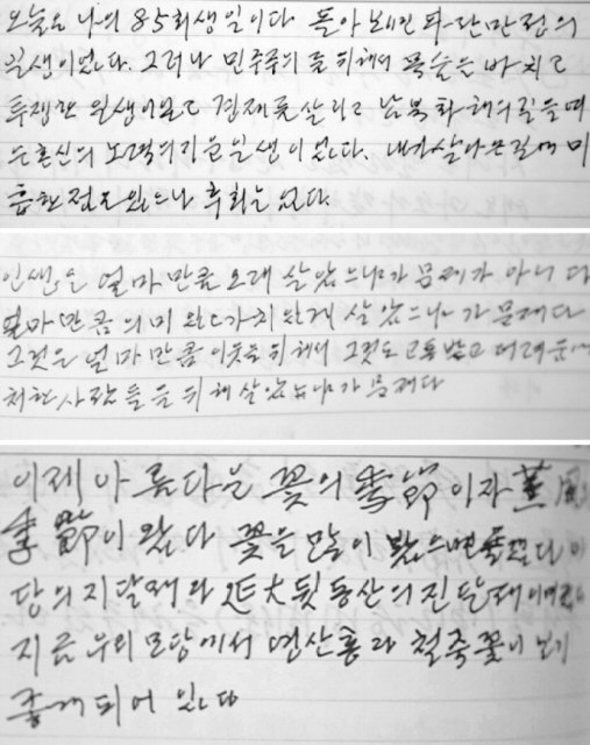 오늘은 나의 85회 생일이다. 돌아보면 파란만장의
일생이었다. 그러나 민주주의를 위해서 목숨을 바치고
투쟁한 일생이었고 경제를 살리고 남북화해의 길을 여
는 혼신의 노력의 기울인 일생이었다. 내가 살아온 길에 미
흡한 점도 있으나 후회는 없다.
인생은 얼마만큼 오래 살았느냐가 문제가 아니다
얼마만큼 의미 있고 가치있게 살았느냐가 문제다
그것은 얼마만큼 이웃을 위해서 그것도 고통받고 어려움에
처한 사람들을 위해 살았느냐가 문제다
이제 아름다운 꽃의 季節이자 薰風
季節이 왔다 꽃을 많이 봤으면 좋겠다
당의 진달래와 延大 뒷동산의 진달래
지금 우리 마당에서 영산홍과 철쭉꽃이 보기
좋게 되어 있다